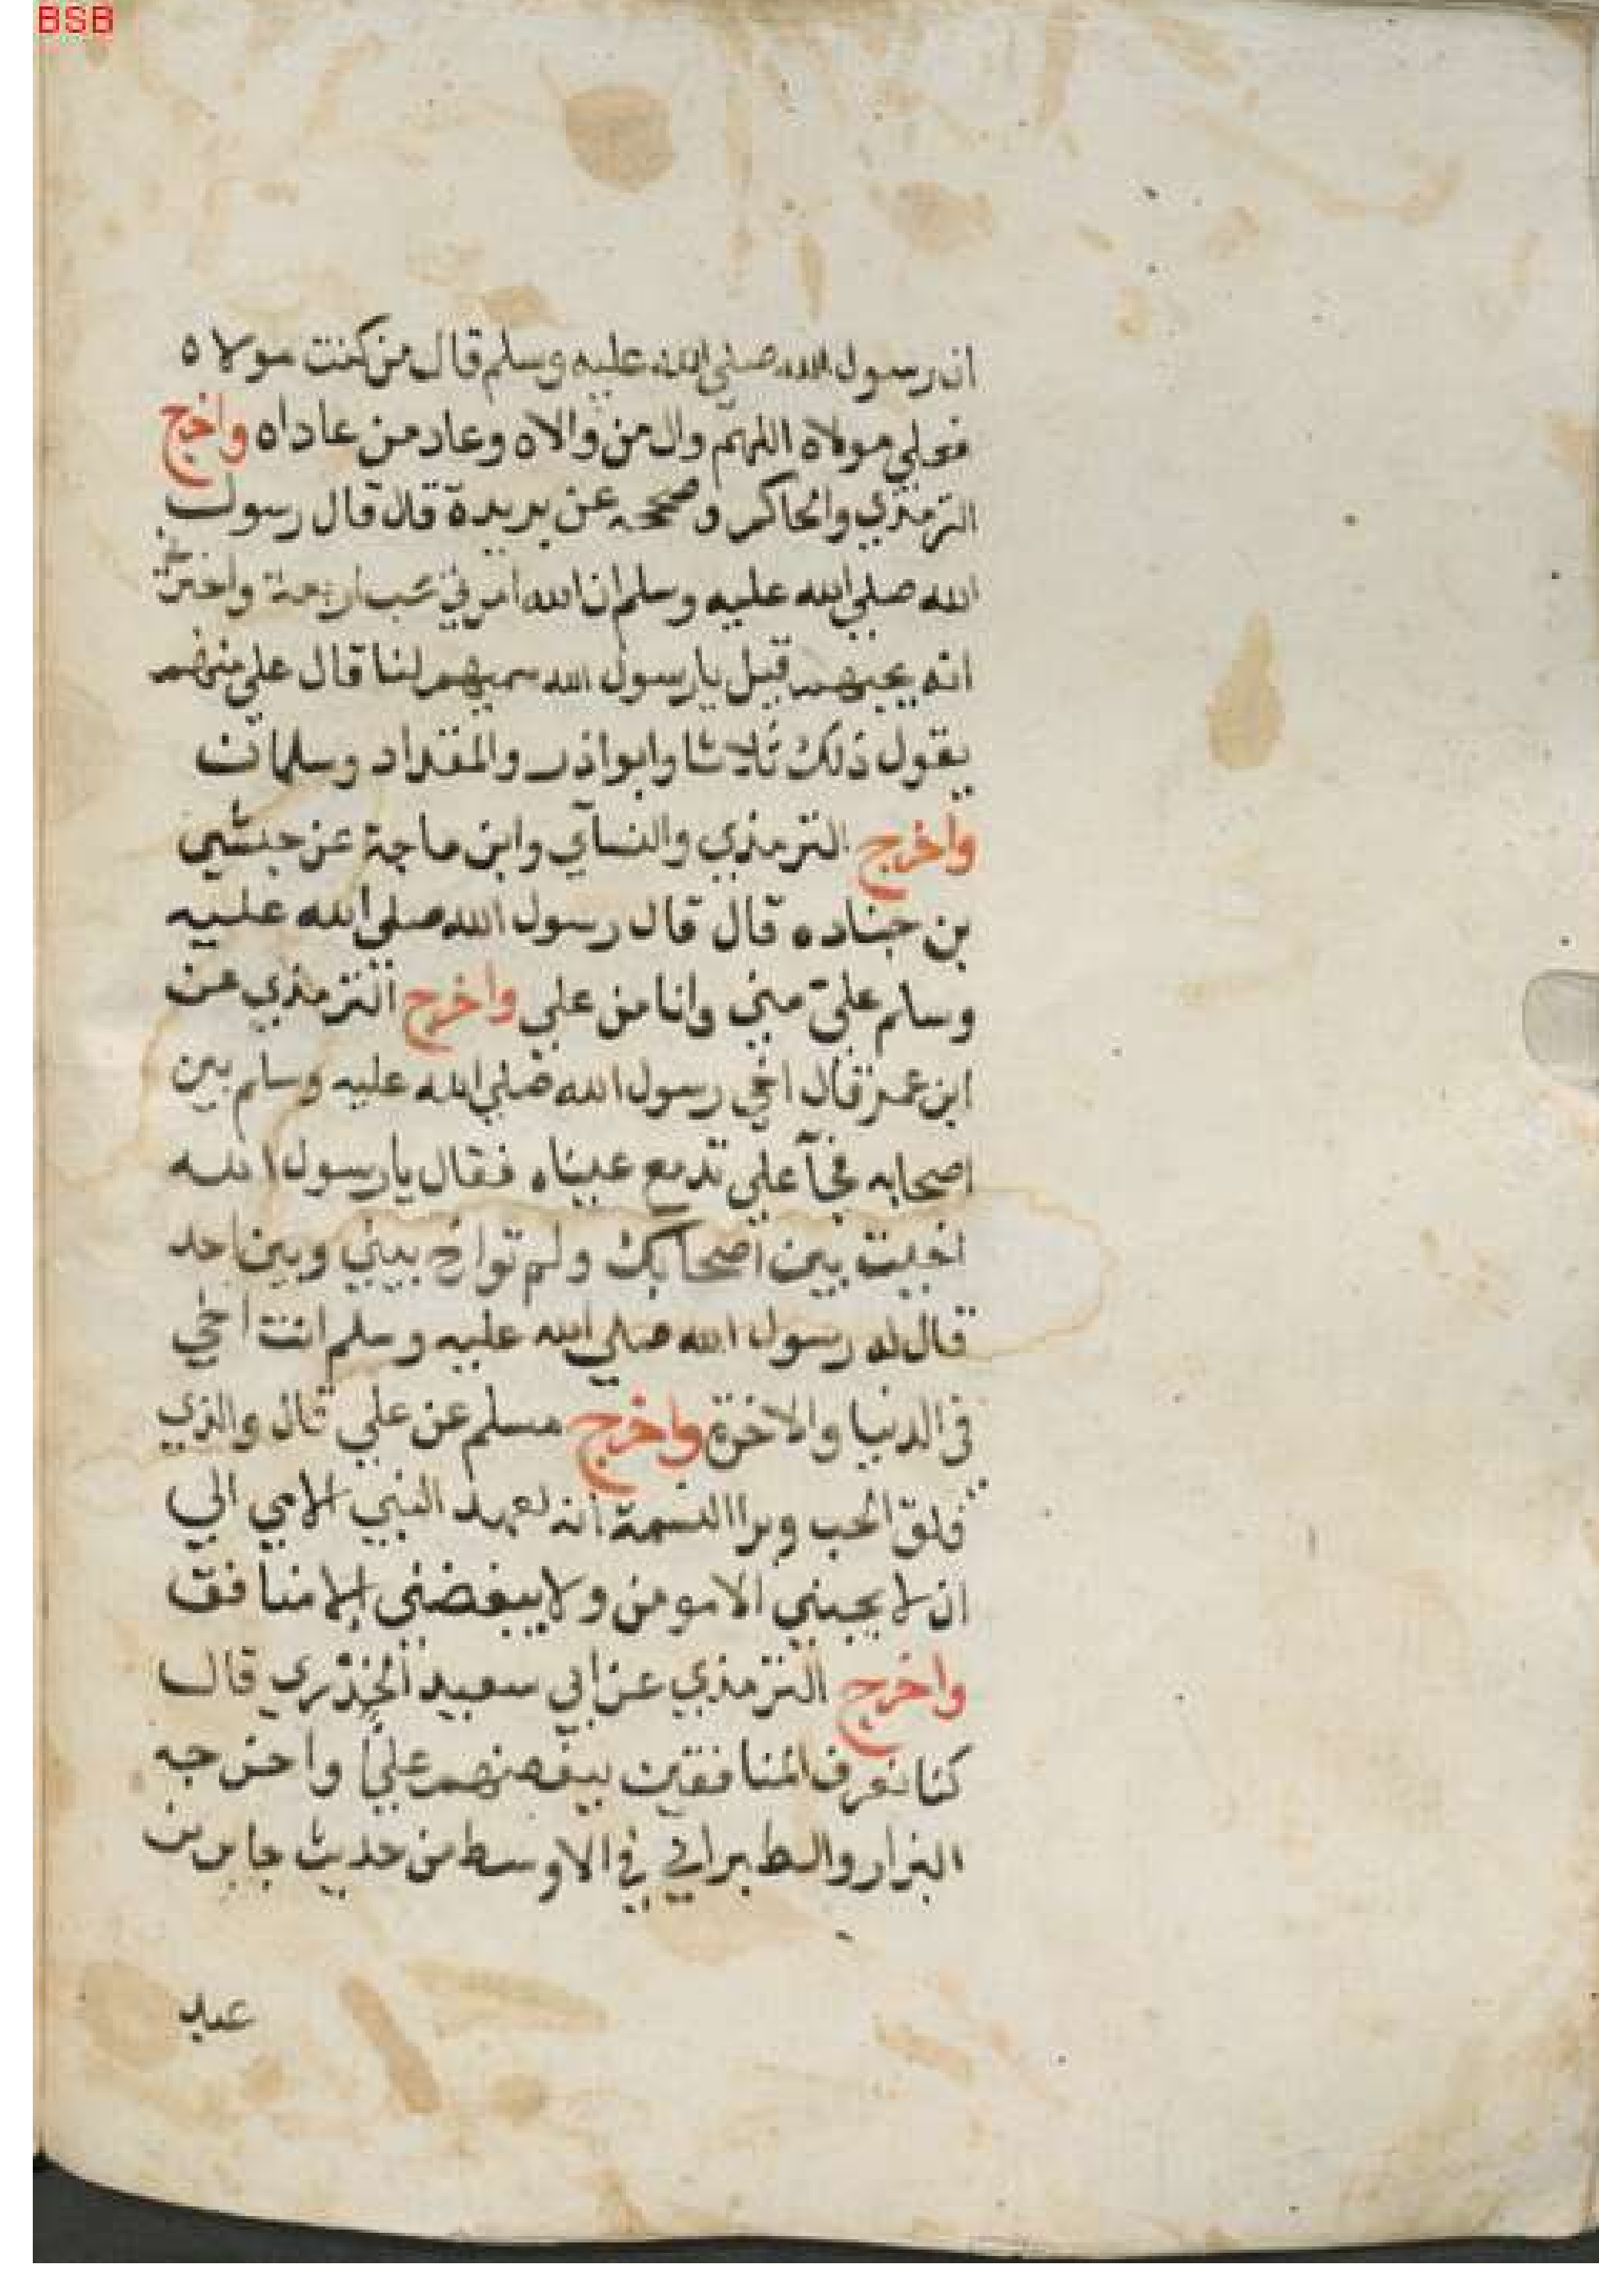 BSB
ان رسول الله صلي الله عليه وسلم قال من كنت مولاه
فعلي مولاه اللهم وال من والاه وعاد من عاداه واخرج
الترمذي والحاكم وصححه عن بريدة قال قال رسول
الله صلي الله عليه وسلم ان الله امرني بحب اربعة واخبرني
انه يحبهم قيل يا رسول الله سميهم لنا قال علي منهم
يقول ذلك ثلاثا وابواذر والمقداد وسلمان
واخرج الترمذي والنسآي وابن ماجة عن حبشي
بن جناده قال قال رسول الله صلي الله عليه
وسلم عليّ مني وانا من علي واخرج الترمذي عن
ابن عمر قال اخي رسول الله صلي الله عليه وسلم بين
اصحابه فجآ علي تدمع عيناه فقال يا رسول الله
اخيت بين اصحابك ولم تواخ بيني وبين احد
قال له رسول الله صلي الله عليه وسلم انت اخي
في الدنيا والاخرة واخرج مسلم عن علي قال والذي
فلق الحب وبرا النسمة انه لعهد النبي الامي الي
ان لا يحبني الا مومن ولا يبغضني الا منافق
واخرج الترمذي عن ابي سعيد الخدري قال
كنا نعرف المنافقين ببغضهم عليا واخرجه
البزار والطبراني في الاوسط من حديث جابر بن
عبد